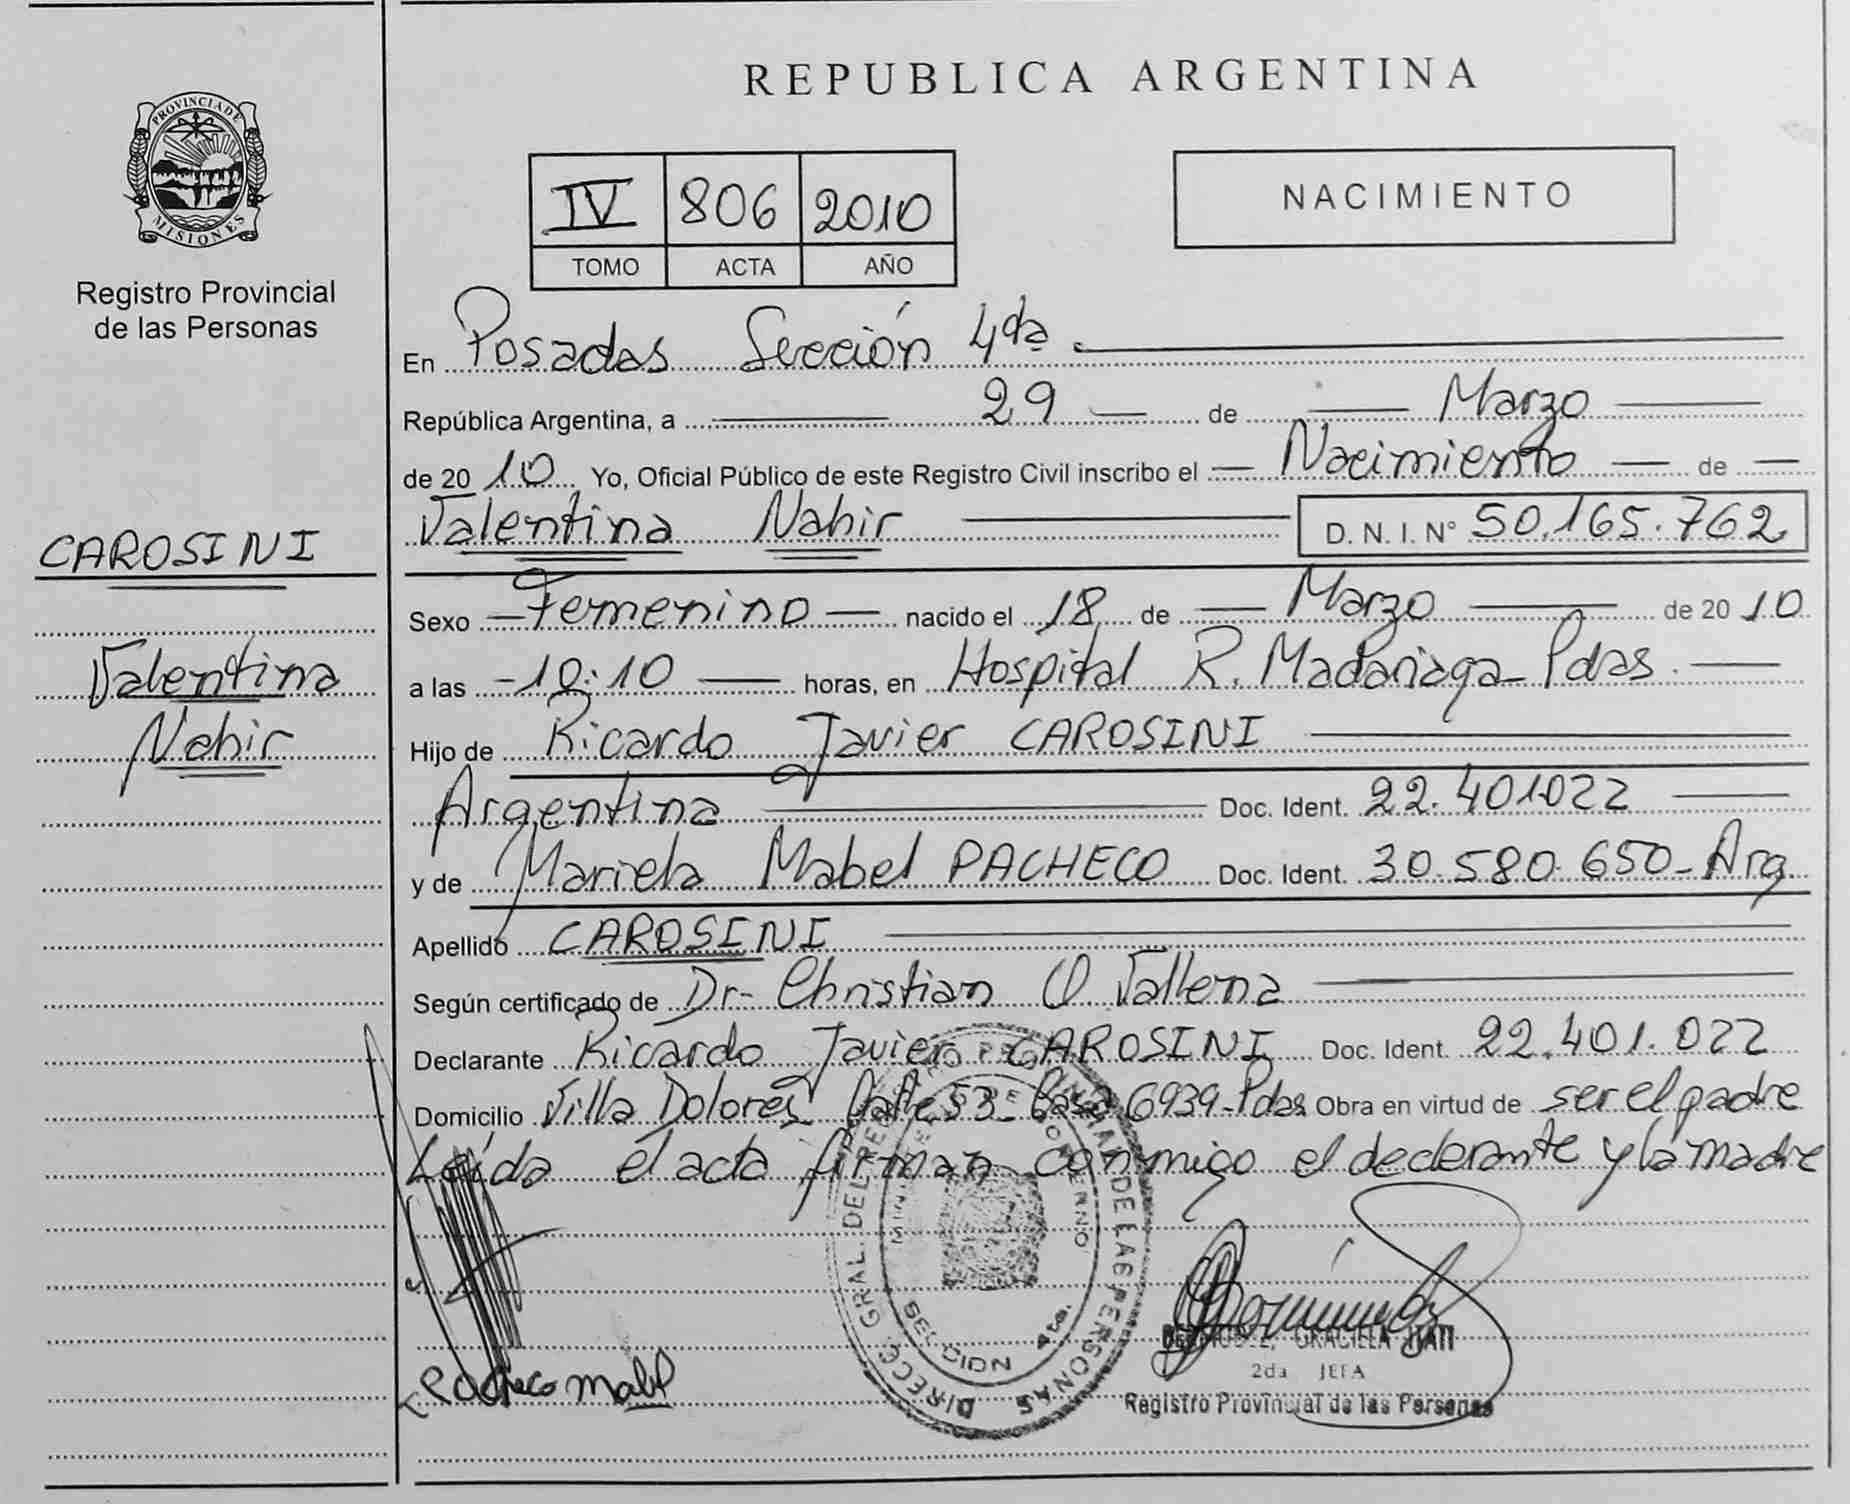 REPUBLICA ARGENTINA
PROVINCIA DE
MISIONES
Registro Provincial
de las Personas
IV 806 2010
TOMO ACTA AÑO
NACIMIENTO
En Posadas Sección 4da
República Argentina, a 29 de Marzo
de 2010 Yo, Oficial Público de este Registro Civil inscribo el Nacimiento de
Valentina Nahir D. N. I. N° 50.165.762
CAROSINI
Valentina
Nahir
Sexo Femenino nacido el 18 de Marzo de 2010
a las 10:10 horas, en Hospital R. Madariaga - Pdas.
Hijo de Ricardo Javier CAROSINI
Argentina Doc. Ident. 22.401.022
y de Mariela Mabel PACHECO Doc. Ident. 30.580.650 - Arg
Apellido CAROSINI
Según certificado de Dr. Christian O Vallena
Declarante Ricardo Javier CAROSINI Doc. Ident. 22.401.022
Domicilio Villa Dolores Calle 53 - Casa 6939 - Pdas Obra en virtud de ser el padre
Leída el acta firman conmigo el declarante y la madre
Pacheco Mabel
GRACIELA
2da JEFA
Registro Provincial de las Personas